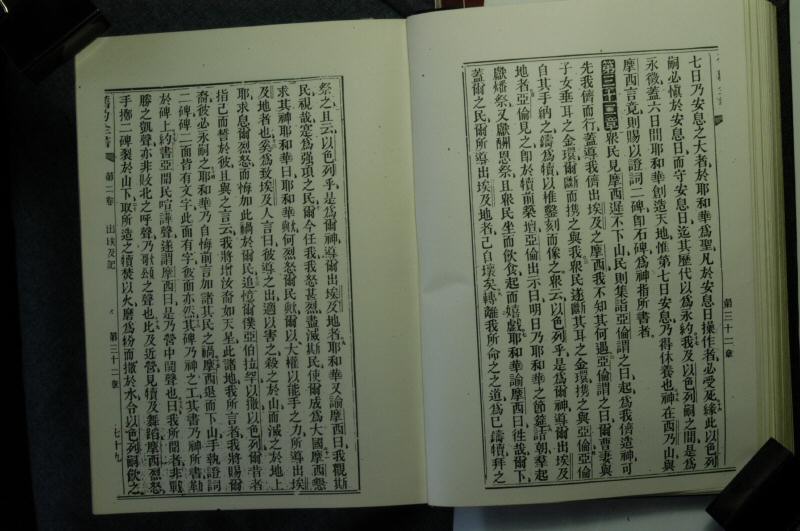 七日乃安息之大者於耶和華為聖凡於安息日操作者必受死緣此以色列
嗣必慎於安息日而守安息日迄其歷代以為永約我及以色列嗣之間是為
永徵蓋六日間耶和華創造天地惟第七日安息乃得休養也神在西乃山與
摩西言竟則賜以證詞二碑即石碑為神指所書者
第三十二章眾民見摩西遲不下山民則集詣亞倫謂之曰起為我儕造神可
先我儕而行蓋導我儕出埃及之摩西我不知其何遇亞倫謂之曰爾曹妻與
子女垂耳之金環爾斷而攜之與我眾民遂斷其耳之金環攜之與亞倫亞倫
自其手納之鑄為犢以椎鑿刻而像之眾云以色列乎是為爾神導爾出埃及
地者亞倫見之即於犢前築壇亞倫出示曰明日乃耶和華之節筵詰朝羣起
獻燔祭又獻酬恩祭且眾民坐而飲食起而嬉戲耶和華諭摩西曰徃哉爾下
蓋爾之民爾所導出埃及地者已自壞矣轉離我所命之之道為己鑄犢拜之
第三十二章
祭之且云以色列乎是為爾神導爾出埃及地者耶和華又諭摩西曰我觀斯
民視哉寔為強項之民爾今任我我怒甚烈盡滅斯民使爾成為大國摩西懇
求其神耶和華曰耶和華歟何烈怒爾民歟爾以大權以能手之力所導出埃
及地者也奚為致埃及人言曰彼導之出適以害之殺之於山而滅之於地上
耶求息爾烈怒而悔加此禍於爾民追憶爾僕亞伯拉罕以撒以色列爾昔者
指己而誓於彼且與之言云我將增汝裔如天星此諸地我所言者我將賜爾
裔彼必永嗣之耶和華乃自悔前言加諸其民之禍摩西退而下山手執證詞
二碑碑二面皆有文字此面有字彼面亦然其碑乃神之工其書乃神所書勒
於碑上約書亞聞民喧譁聲遂謂摩西曰是乃營中鬥聲也曰我所聞者非戰
勝之凱聲亦非敗北之呼聲乃歌頌之聲也比及近營見犢及舞蹈摩西烈怒
手擲二碑裂於山下取所造之犢焚以火磨為粉而撒於水令以色列嗣飲之
舊約全書 第二卷 出埃及記 第三十二章 七十九